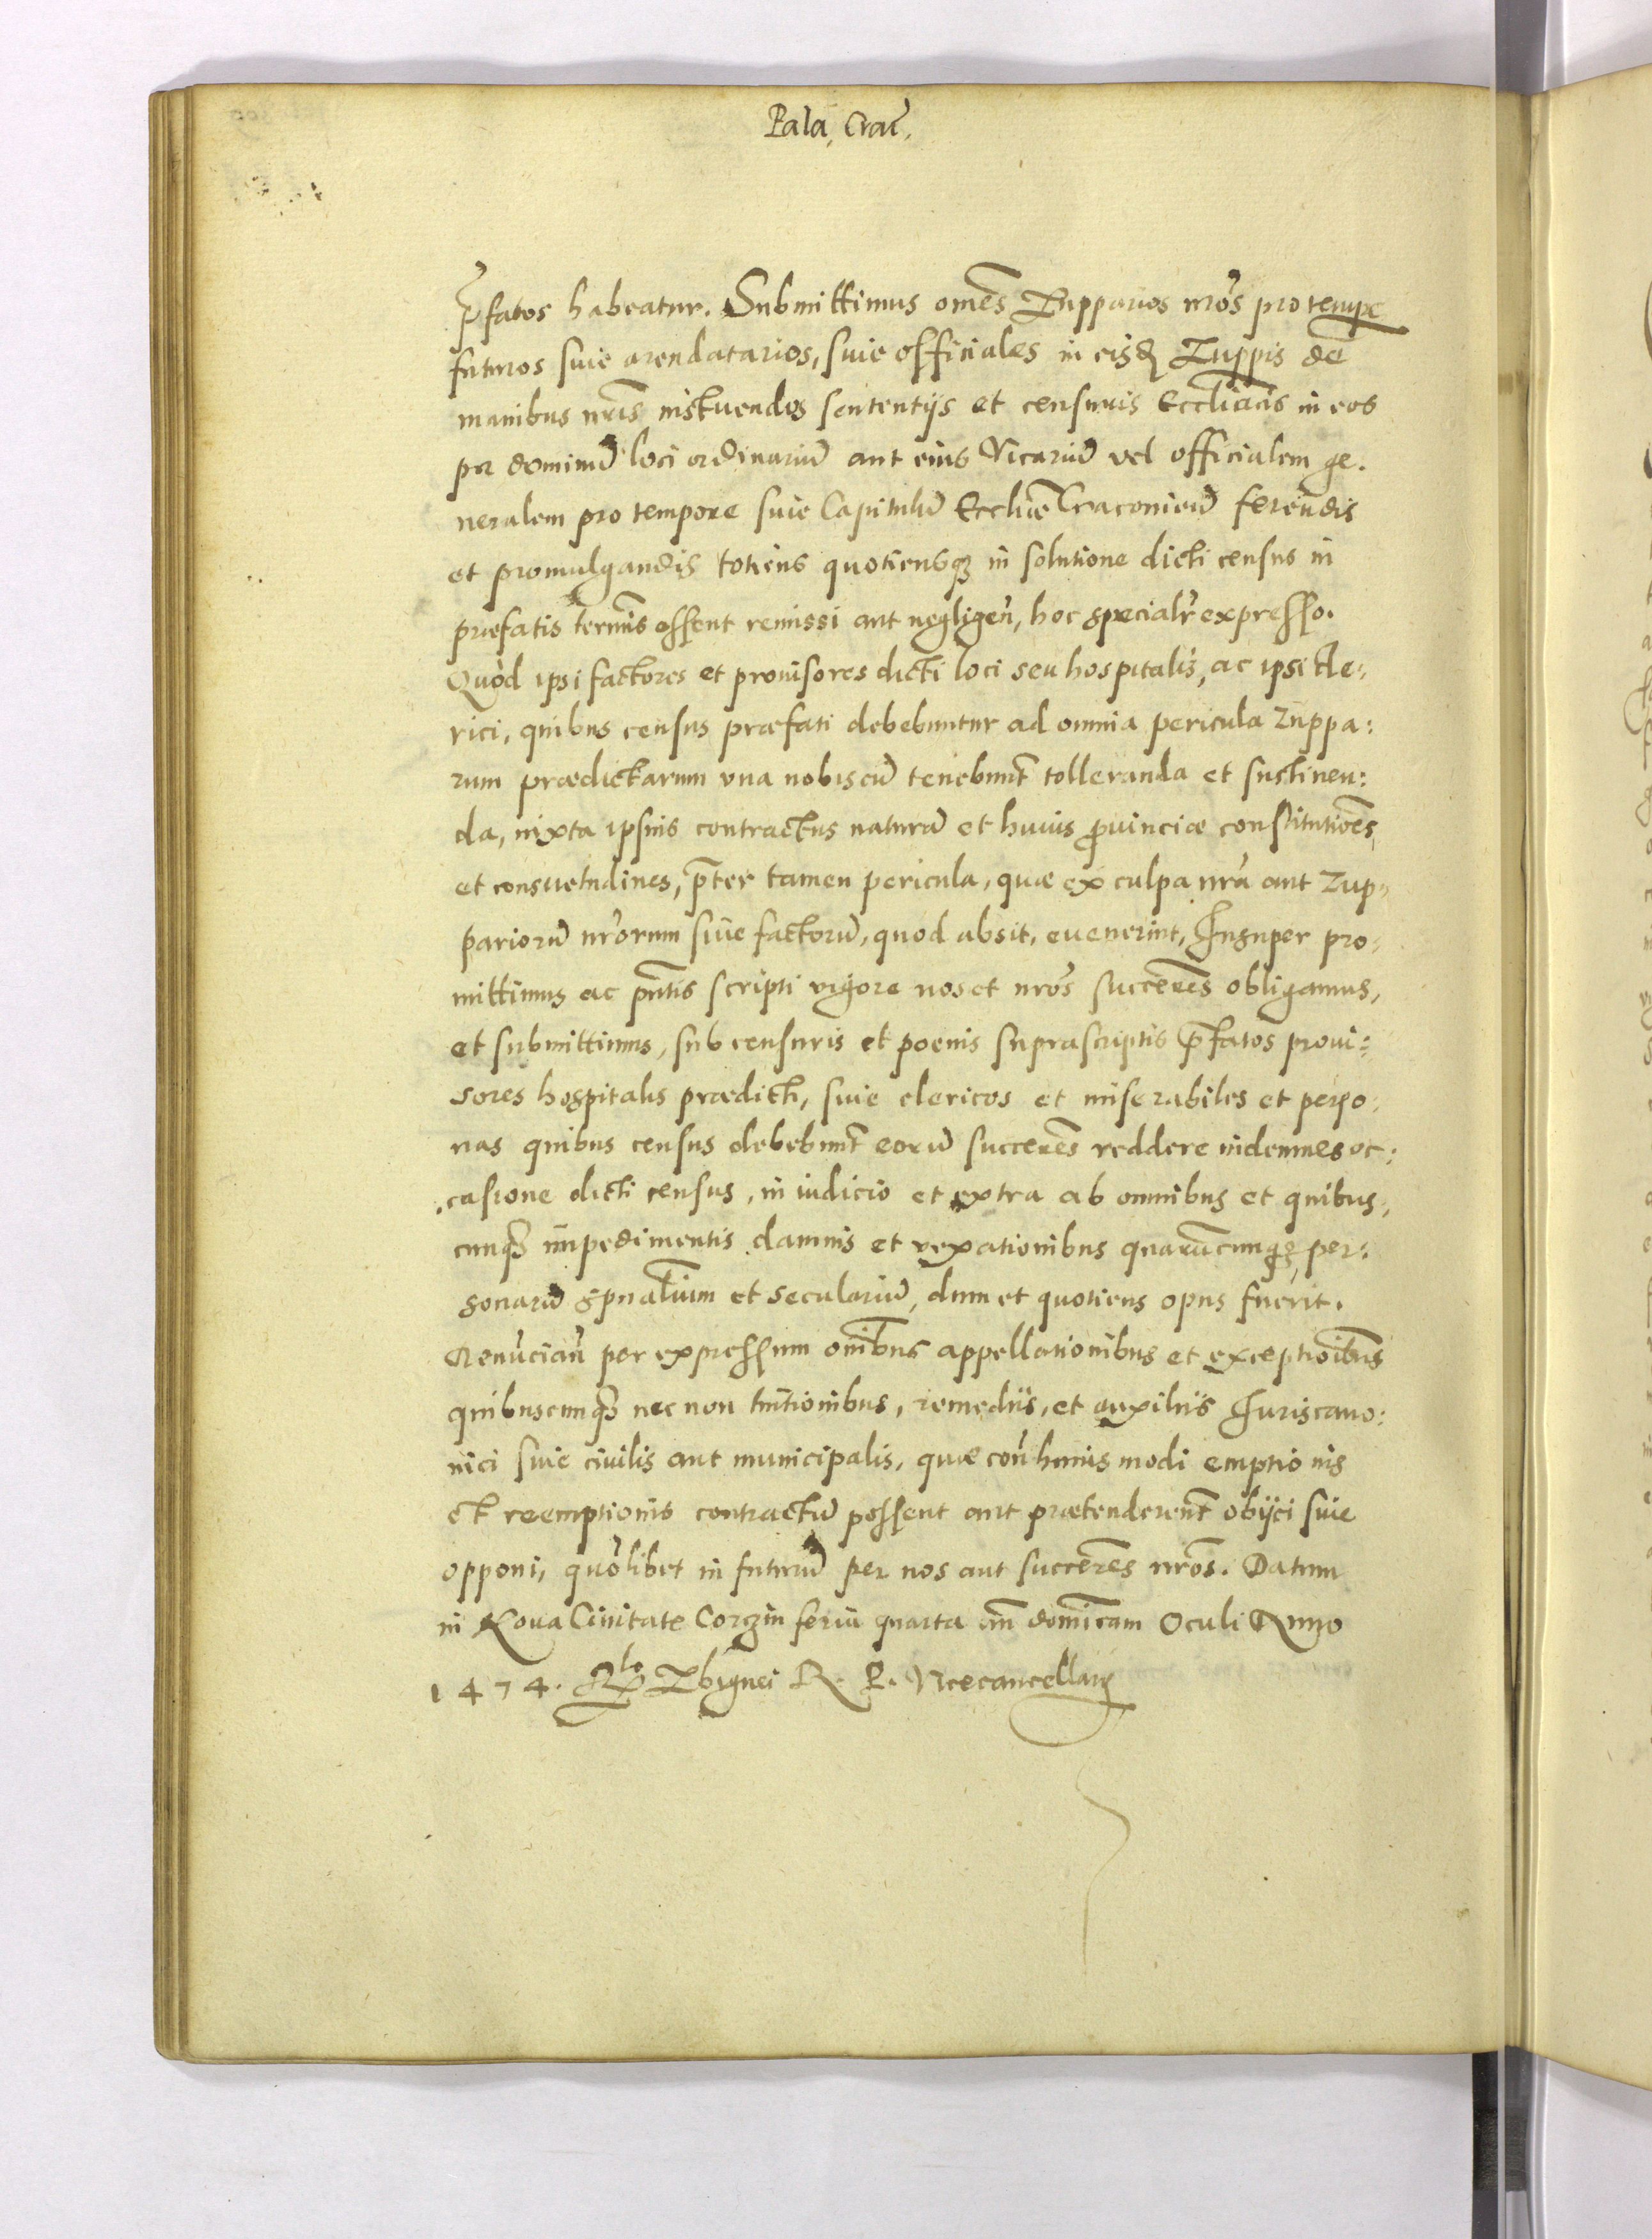 Pala, Crać,
p̄fatos habeatur. Submittimus om̄es Zupparios nr̄os pro tempe
futuros siue arendatarios, siue officiales in eisd Zuppis de
manibus nr̄is instuendos sententijs et censuris Eccl̄iacis in eos
per dominū loci ordinariū aut eius Vicariū vel officialem ge.
neralem pro tempore siue Capitulū Eccl̄iae Cracouień ferendis
et promulgandis totiens quotiensq in solutione dicti census in
præfatis termīs essent remissi aut negligeń, hoc specialr̄ expresso.
Quòd ipsi factores et prouisores dicti loci seu hospitalis, ac ipsi Cle:
rici, quibus census præfati debebuntur ad omnia pericula Zuppa:
rum prædictarum vna nobiscū tenebunt̄ tolleranda et sustinen:
da, iuxta ipsius contractus naturā et huius ꝓuinciæ constitutiōes,
et consuetudines, p̄ter tamen pericula, quæ ex culpa nr̄a aut Zup:
pariorū nr̄orum siue factorū, quod absit, euenerint, Insuper pro:
mittimus ac pn̄tis scripti vigore nos et nr̄os succeres̄ obligamus,
et submittimus, sub censuris et poenis suprascriptis p̄fatos proui:
sores hospitalis prædicti, siue clericos et miserabiles et perso:
nas quibus census debebunt̄ eorū succeres̄ reddere indemnes oc:
casione dicti census, in iudicio et extra ab omnibus et quibus,
cunq impedimentis damnis et vexationibus quarūcunq, per:
sonarū spūalium et seculariū, dum et quotiens opus fuerit.
Renūciań per expressum om̄ibus appellationibus et exceptiōibus
quibuscunq nec non tuitionibus, remedijs, et auxilijs Iuris cano:
nici siue ciuilis aut municipalis, quæ coń huius modi emptionis
et reemptionis contractū possent aut prætenderent̄ obijci siue
opponi, quōlibet in futurū per nos aut succeres̄ nr̄os. Datum
in Noua Ciuitate Corczin feria quarta an̄ dominīcam Oculi Anno
1474. Rlo Zbignei R. P. Vicecancellarij